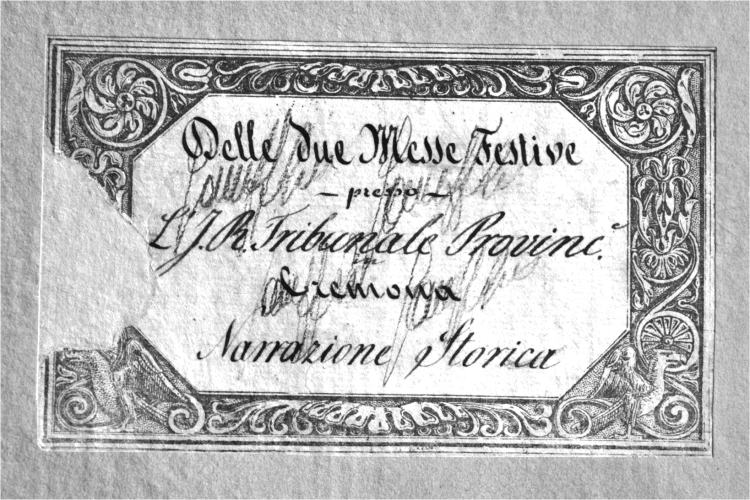 Delle due Messe Festive
– presso –
L'I. R. Tribunale Provinc.e
in
Cremona
Narrazione Storica